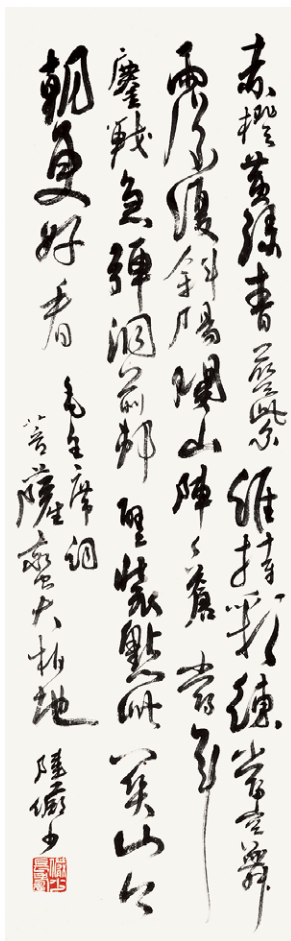 赤橙黃綠青藍紫誰持彩練當空舞
雨後復斜陽關山陣々蒼當年
鏖戰急彈洞前村壁裝點此關山今
朝更好看
毛主席詞
菩薩蠻大柏地
陸儼少